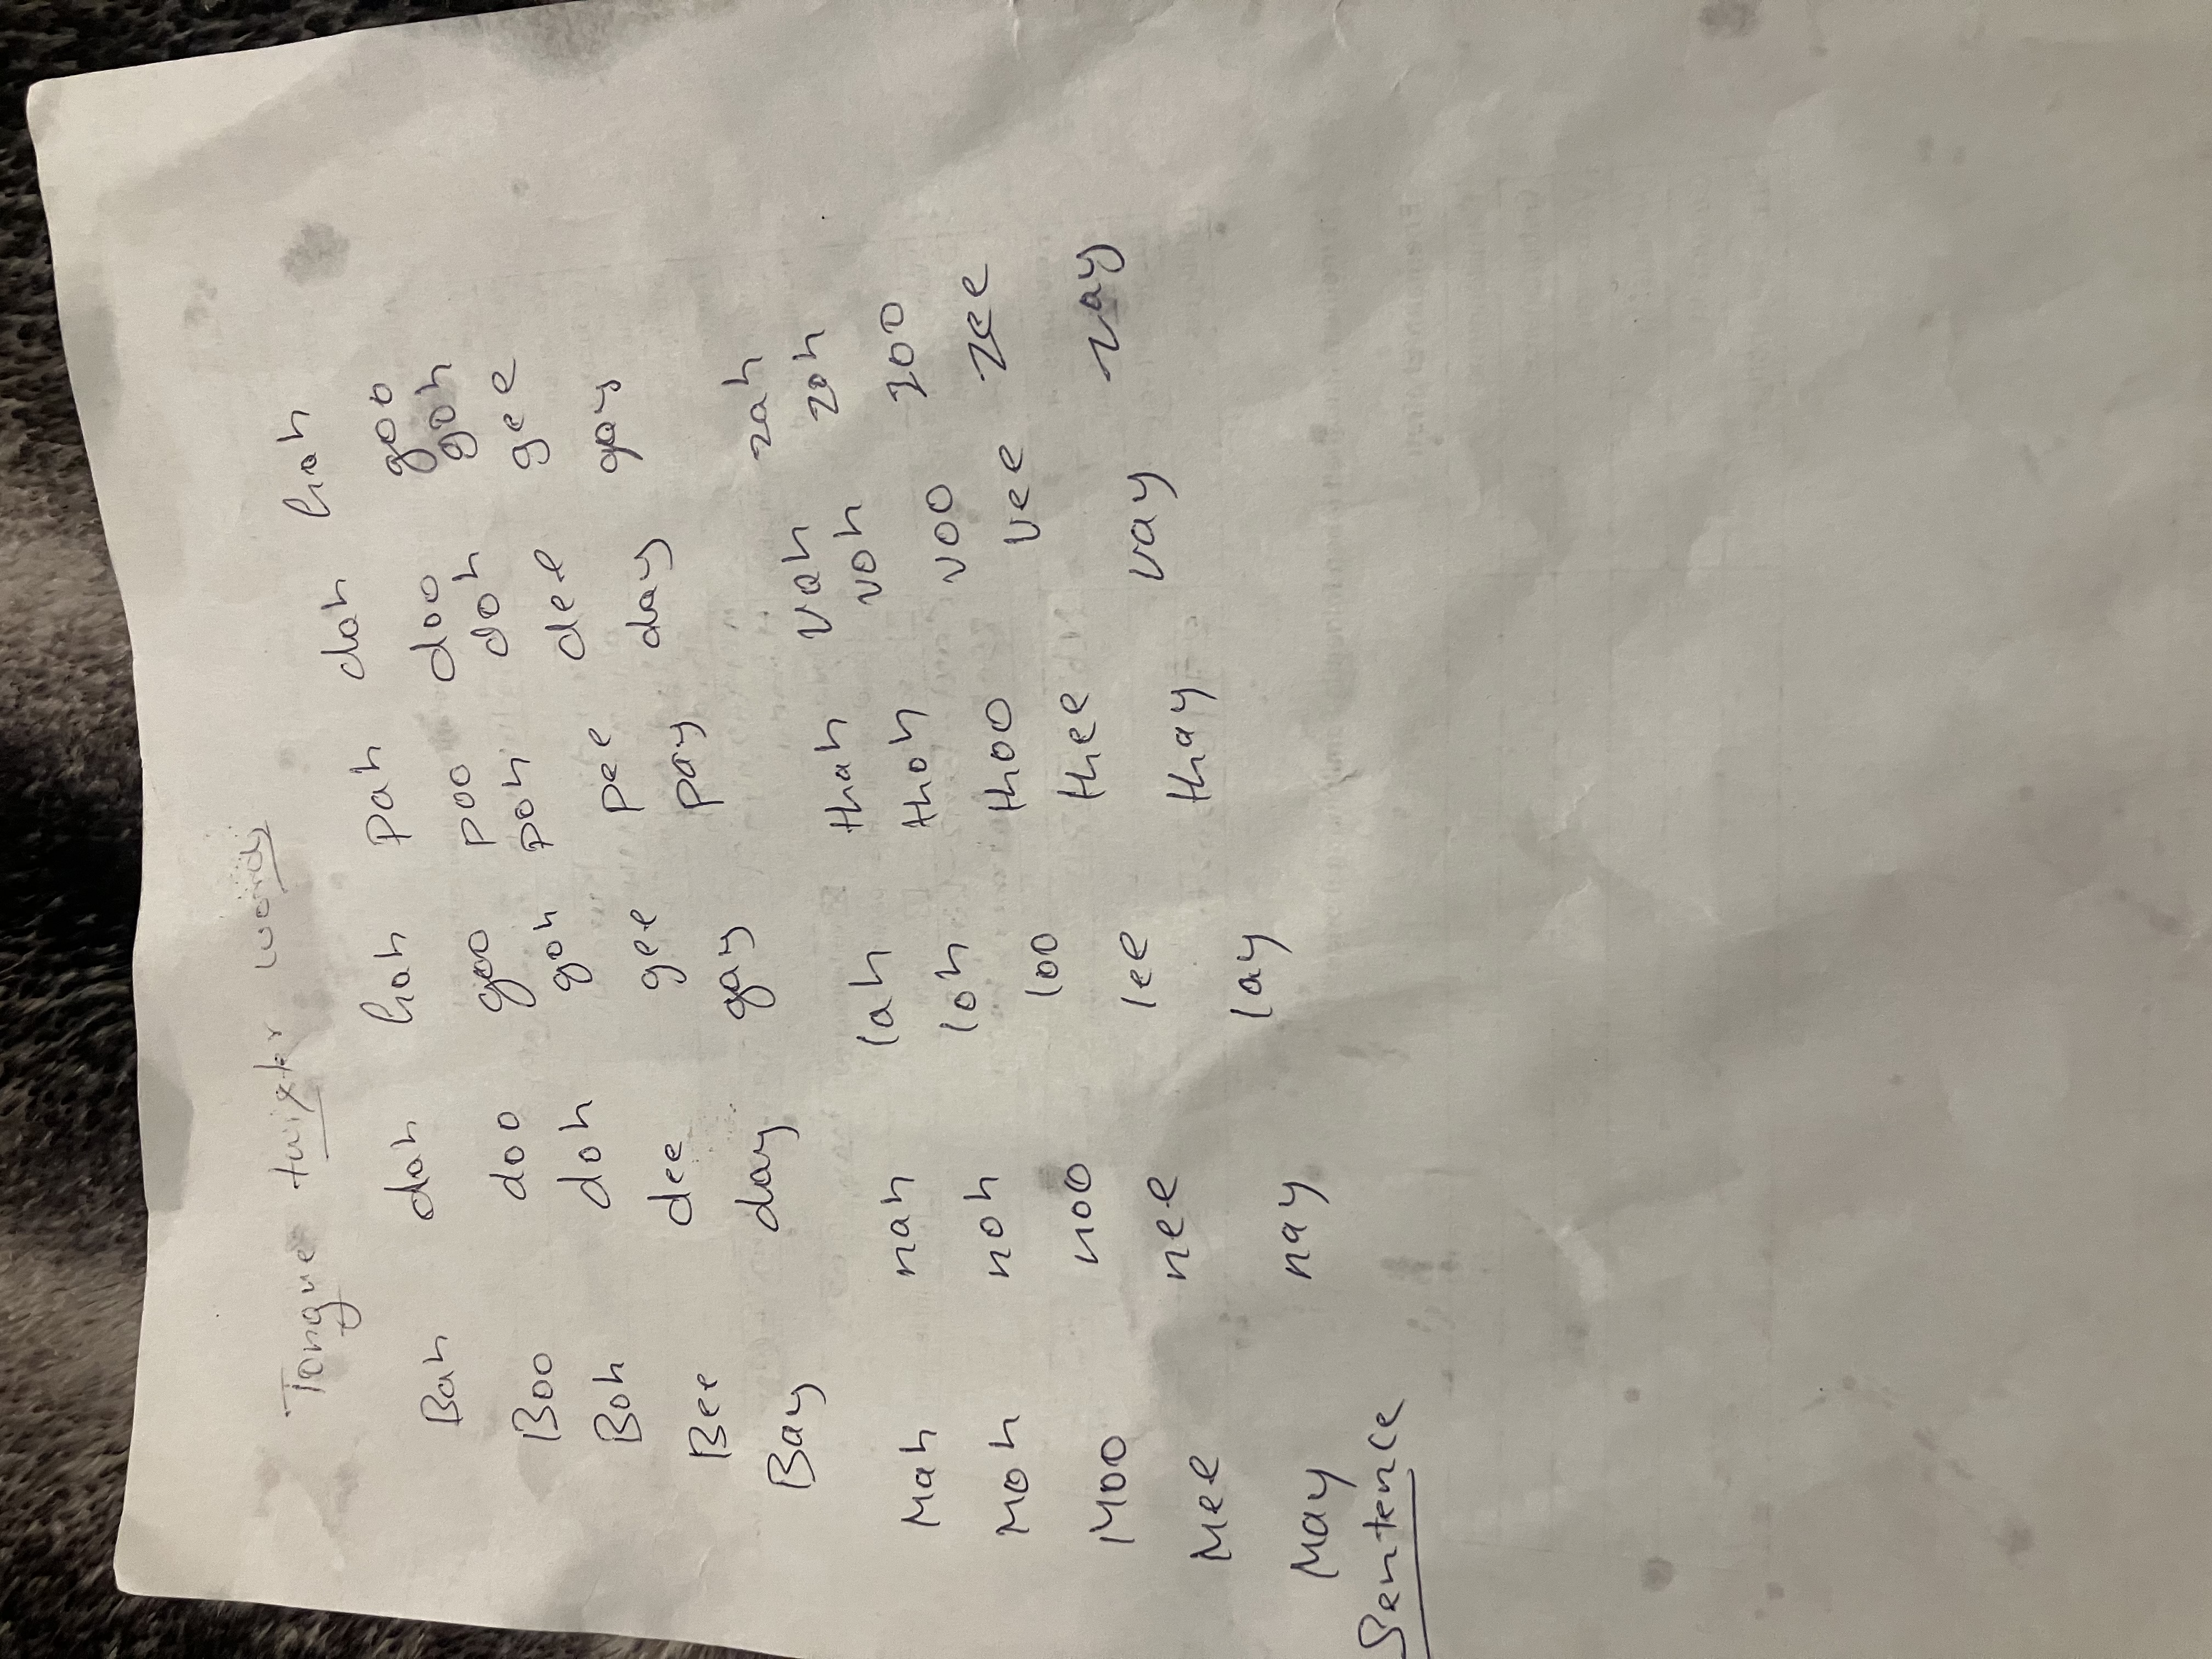 Tongue twixter words
Bah dah hah pah dah hah
Boo doo goo poo doo goo
Boh doh goh poh doh goh
Bee dee gee pee dee gee
Bay day gay pay day gay
Mah nah lah thah vah zah
Moh noh loh thoh voh zoh
Moo noo loo thoo voo zoo
Mee nee lee thee vee zee
May nay lay thay vay zay
Sentence